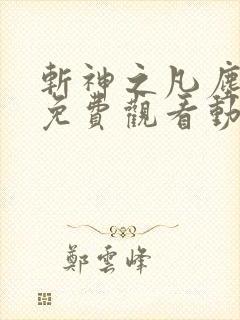 斬神之凡塵
免費觀看動
鄭雲峰